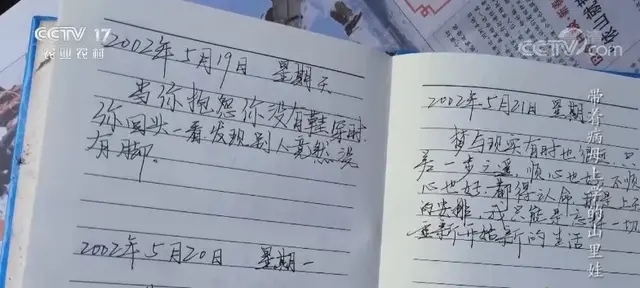 CCTV 17
农业农村
2002年5月19日 星期天
当你抱怨你没有鞋穿时,
你回头一看发现别人竟然没
有脚。
2002年5月20日 星期一
2002年5月21日 星期
梦与现实有时也很 只
差一步之遥,顺心也好,不顺
心也好,都得认命, 上
的安排,我只能是 一切
重新开始新的生活
带着病母上学的山里娃